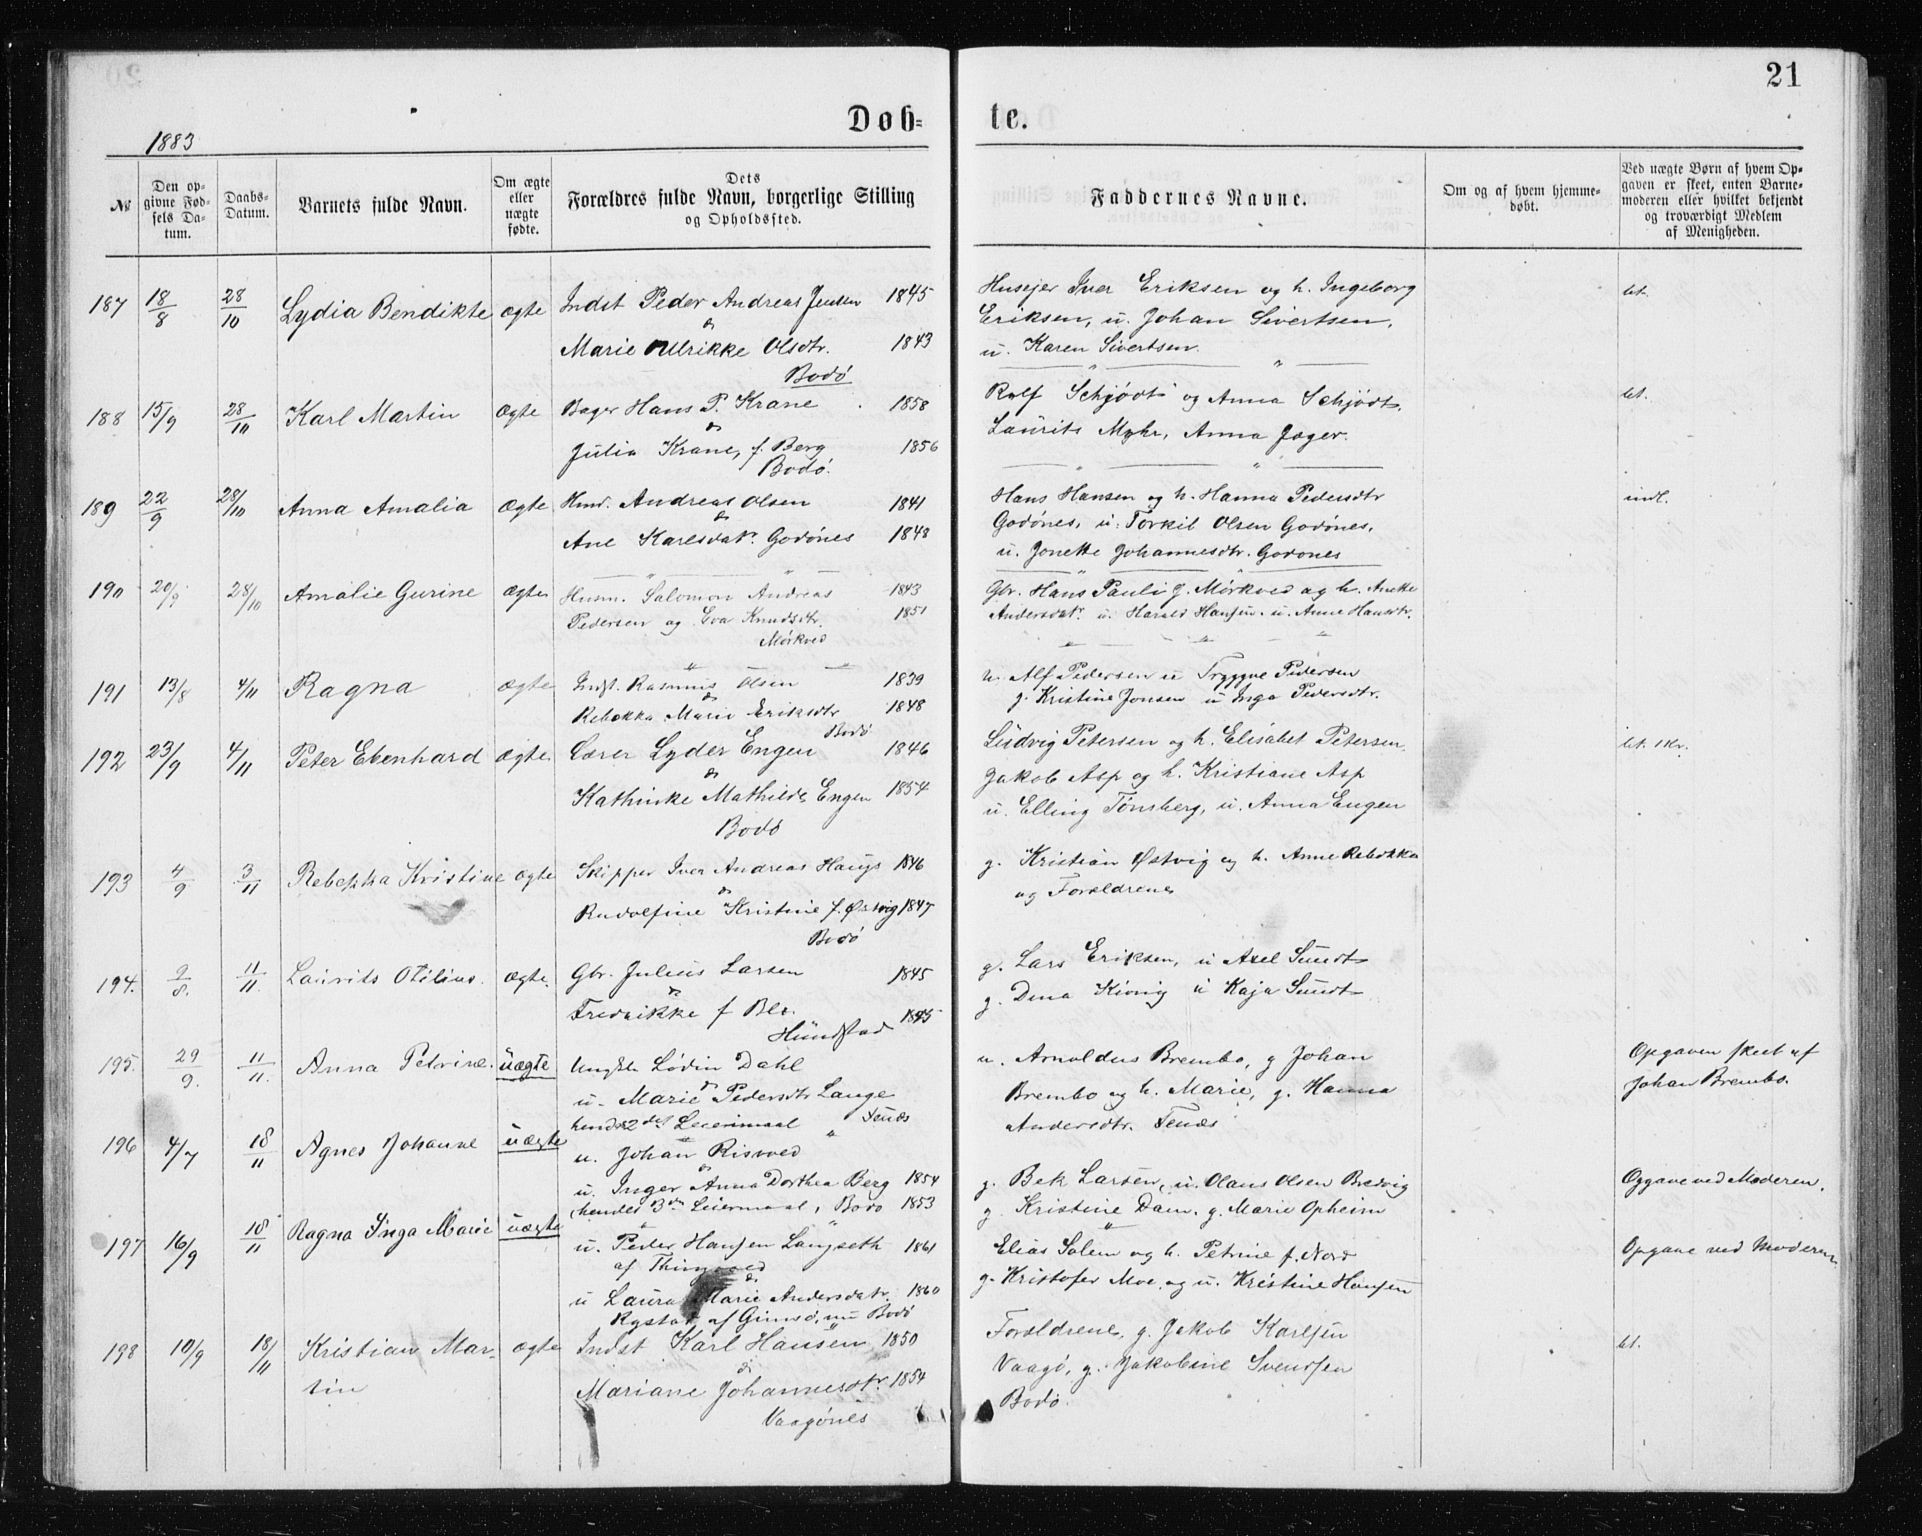 21
Døb=
te.
1883
№
Den op-
givne Fød-
sels Da-
tum.
Daabs-
Datum.
Barnets fulde Navn.
Om ægte
eller
uægte
fødte.
Dets
Forældres fulde Navn, borgerlige Stilling
og Opholdssted.
Faddernes Navne.
Om og af hvem hjemme-
døbt.
Ved uægte Børn af hvem Op-
gaven er skeet, enten Barne-
moderen eller hvilket bekjendt
og troværdigt Medlem
af Menigheden.
187 18/8 28/10 Lydia Bendikte ægte Indst Peder Andreas Jensen 1845
&
Marie Ulrikke Olsdtr. 1843
Bodø
Husejer Iver Eriksen og h. Ingeborg
Eriksen, u. Johan Sivertsen,
u. Karen Sivertsen.
bt.
188 15/9 28/10 Karl Martin Ægte Bager Hans P. Krane 1858
&
Julia Krane, f. Berg 1856
Bodø.
Rolf Schjødt og Anna Schjødt,
Laurits Myhr, Anna Jæger.
bt.
189 22/9 28/10 Anna Amalia Ægte Hmd. Andreas Olsen 1841
&
Ane Karlsdatr. Godønes 1848
Hans Hansen og h. Hanna Pedersdtr
Godønes, u. Torkil Olsen Godønes,
u. Jonette Johannesdtr. Godønes
indl.
190 20/9 28/10 Amalie Gurine ægte Husm. Salomon Andreas 1843
Pedersen og Eva Knudsdtr. 1851
Mørkved
Gbr. Hans Pauli J. Mørkved og h. Anette
Andersdatr. u. Harald Hansen. u. Anne Hansdtr.
191 13/8 4/11 Ragna ægte Indst. Rasmus Olsen 1839
&
Rebekka Marie Eriksdtr 1848
Bodø
u. Alf Pedersen u Tryggve Pedersen
g. Kristine Jonsen u Inga Pedersdtr.
192 23/9 4/11 Peter Ebenhard ægte Lærer Lyder Engen 1846
&
Kathinke Mathilde Engen 1854
Bodø
Ludvig Petersen og h. Elisabet Petersen.
Jakob Asp og h. Kristiane Asp
u. Elling Tønsberg, u. Anna Engen
bt. 1 Kr.
193 4/9 3/11 Rebekka Kristine ægte Skipper Iver Andreas Haugs 1846
&
Rudolfine Kristine f. Østvig 1847
Bodø
g. Kristian Østvig og h. Anne Rebekka
og Forældrene
194. 9/8. 11/11. Laurits Otilius. ægte. Gbr. Julius Larsen 1845
&
Fredrikke f Ble. 1845
Hundstad
g. Lars Eriksen, u Axel Sundt
g. Dina Kivig u Kaja Sundt
195. 29/9. 11/11. Anna Petrine. uægte Ungkl Lødin Dahl
&
u. Marie Pedersdtr Lange
hendes 2det Leiermaal Tenæs
u. Arnoldus Brembo, g Johan
Brembo og h. Marie, g. Hanna
Andersdtr. Tenæs
Opgaven skeet af
Johan Brembo.
196 4/7 18/11 Agnes Johanne uægte u. Johan Risvoed
&
u. Inger Anna Dorthea Berg 1854
hendes 3die Leiermaal, Bodø 1853
g. Bek Larsen, u. Olaus Olsen Bredvig
g. Kristine Dam, g. Marie Opheim
Opgave ved Moderen.
197 16/9 18/11 Ragna Inga Marie uægte u. Peder Hansen Langseth 1861
af
&
u Laura Marie Andersdatr. 1860
Rystad af Gimsø, nu Bodø
Elias Salem og h. Petrine f. Nord
g. Kristofer Moe og u. Kristine Hansen
Opgave ved Moderen
198 10/9 18/11 Kristian Mar-
tin
ægte Indst Karl Hansen 1850
&
Mariane Johannesdtr. 1854
Vaagønes
Forældrene, g. Jakob Karlsen
Vaagø, g. Jakobine Svendsen
Bodø.
bt.